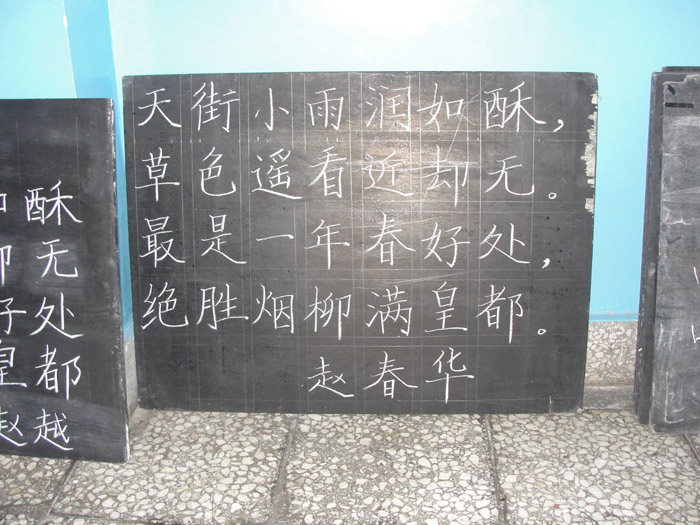 天街小雨润如酥，
草色遥看近却无。
最是一年春好处，
绝胜烟柳满皇都。
赵春华
酥
无
好处
皇都
赵越